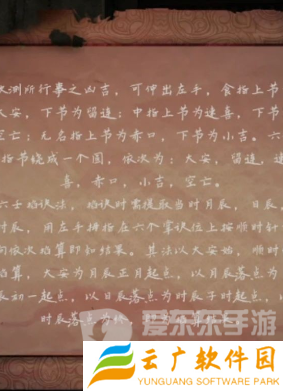 测所行事之凶吉，可伸出左手，食指上节
大安，下节为留连；中指上节为速喜，下节
空亡；无名指上节为赤口，下节为小吉。六
指节绕成一个圆，依次为：大安，留连，速
喜，赤口，小吉，空亡。
六壬掐诀法，掐诀时需提取当时月辰，日辰，
时辰，用左手拇指在六个掌诀位上按顺时针
向依次掐算即知结果。其法以大安始，顺时
掐算，大安为月辰正月起点，以月辰落点为
辰初一起点，以日辰落点为时辰子时起点，
时辰落点为终
爱乐乐手游
云广软件园
YUNGUANG SOFTWARE PARK